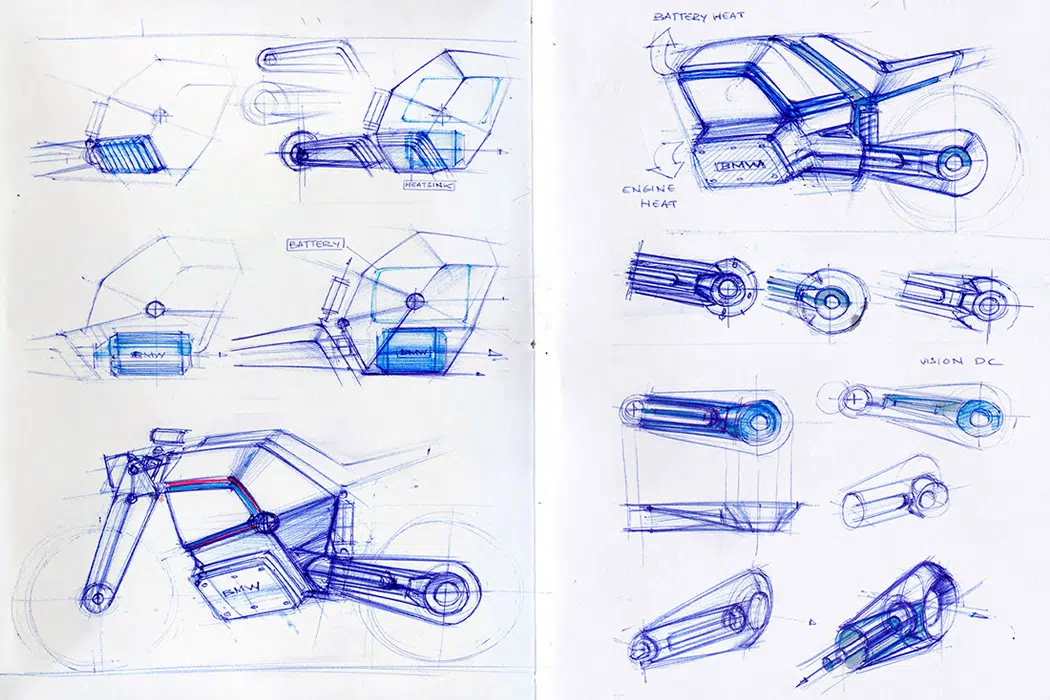 HEATSINK
BATTERY
BMW
BMW
BMW
BATTERY HEAT
BMW
ENGINE
HEAT
VISION DC